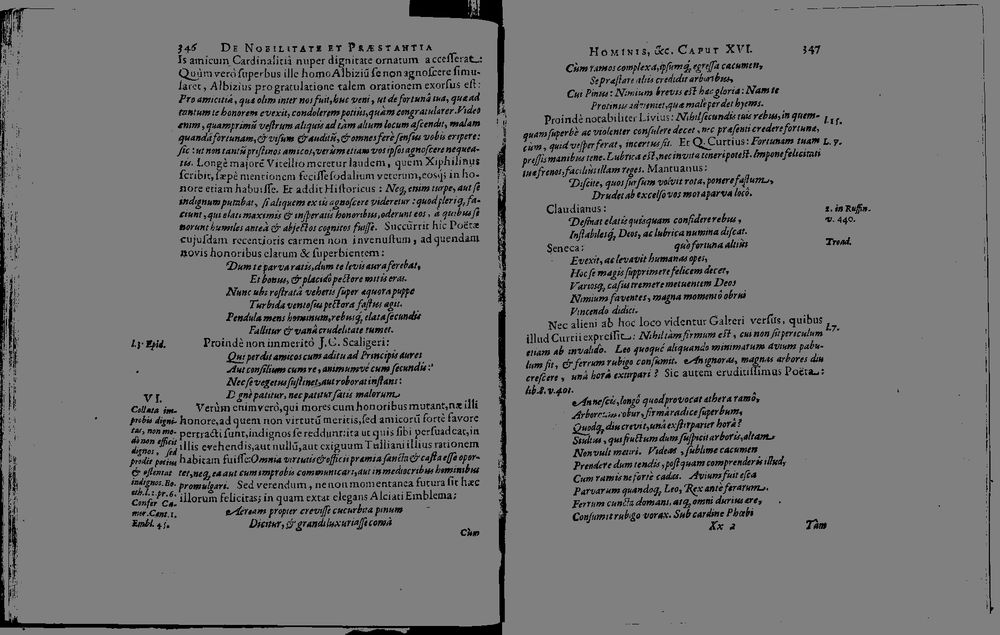 346 DE NOBILITATE ET PRÆSTANTIA
Is amicum Cardinalitiâ nuper dignitate ornatum accesserat:
Quùm verò superbus ille homo Albiziũ se non agnoscere simu-
laret, Albizius pro gratulatione talem orationem exorsus est:
Pro amicitiâ, quæ olim inter nos fuit, huc veni, ut de fortunâ tua, quæ ad
tantum te honorem evexit, condolerem potiùs, quàm congratularer. Video
enim, quamprimũ vestrum aliquis ad tàm altum locum ascendit, malam
quandã fortunam, & visum & auditũ, & omnes ferè sensus vobis eripere:
sic: ut non tantũ pristinos amicos, verùm etiam vos ipsos agnoscere nequea-
tis. Longè majorẽ Vitellio meretur laudem, quem Xiphilinus
scribit, sæpè mentionem fecisse sodalium veterum, eosq; in ho-
nore etiam habuisse. Et addit Historicus: Neq, enim turpe, aut se
indignum putabat, si aliquem ex iis agnoscere videretur: quod pleriq, fa-
ciunt, qui elati maximis & insperatis honoribus, oderunt eos, à quibus se
norunt humiles anteà & abjectos cognitos fuisse. Succurrit hîc Poëtæ
cujusdam recentioris carmen non invenustum, ad quendam
novis honoribus elatum & superbientem:
Dum te parva ratis, dum te levis aura ferebat,
Et bonus, & placidò pectore mitis eras.
Nunc ubi rostratâ veheris super æquora puppe
Turbida ventosus pectora fastus agit.
Pendula mens hominum, rebusq, elata secundis
Fallitur & vanâ crudelitate tumet.
l.3. Epid. Proindè non immeritò J. C. Scaligeri:
Qui perdit amicos cum aditu ad Principis aures
Aut consilium cum re, animumvè cum secundis:
Nec se vegetus sustinet, aut roborat instans:
Dignè patitur, nec patitur satis malorum.
VI.
Collata im-
probis digni-
tas, non mo-
dò non efficit
dignos, sed
prodit potius
& ostentat
indignos. Bo-
eth. l. 2. pr. 6.
Confer Ca-
mer. Cent. 1.
Embl. 45.
Verùm enimverò, qui mores cum honoribus mutant, næ illi
honore, ad quem non virtutũ meritis, sed amicorũ fortè favore
pertracti sunt, indignos se reddunt: ita ut quis sibi persuadeat, in
illis evehendis, aut nullũ, aut exiguum Tulliani illius rationem
habitam fuisse: Omnia virtutis & officii præmia sancta & casta esse opor-
tet, neq, ea aut cum improbis communicari, aut in mediocribus hominibus
promulgari. Sed verendum, ne non momentanea futura sit hæc
illorum felicitas; in quam extat elegans Alciati Emblema:
Aëream propter crevisse cucurbita pinum
Dicitur, & grandi luxuriasse comâ
Cùm
HOMINIS, &c. CAPUT XVI. 347
Cùm ramos complexa, ipsumq, egressa cacumen,
Se præstare aliis credidit arboribus,
Cui Pinus: Nimium brevis est hæc gloria: Nam te
Protinus adveniet, quæ male perdet hyems.
Proindè notabiliter Livius: Nihil secundis tuis rebus, in quem-
quam superbè ac violenter consulere decet, nec præsenti credere fortunæ,
cùm, quid vesper ferat, incertus sit. Et Q. Curtius: Fortunam tuam
pressis manibus tene. Lubrica est, nec invita teneri potest. Impone felicitati
tuæ frenos, faciliùs illam reges. Mantuanus:
l.25.
L. 7.
Discite, quos sursum volvit rota, ponere fastum,
Drudet ab excelso vos mota parva loco.
Claudianus:
2. in Ruffin.
v. 440.
Desinat elatis quisquam confidere rebus,
Instabilesq, Deos, ac lubrica numina discat.
Seneca: quò fortuna altius
Troad.
Evexit, ac levavit humanas opes,
Hoc se magis supprimere felicem decet,
Variosq, casus tremere metuentem Deos
Nimium faventes, magna momentô obrui
Vincendo didici.
Nec alieni ab hoc loco videntur Galteri versus, quibus
illud Curtii expressit: Nihil tàm firmum est, cui non sit periculum
etiam ab invalido. Leo quoque aliquando minimarum avium pabu-
lum fit, & ferrum rubigo consumit. An ignoras, magnas arbores diu
crescere, unâ horâ extirpari? Sic autem eruditissimus Poëta:
l.7.
lib. 8. v. 401.
An nescis, longô quod provocat æthera ramô,
Arboreum robur, firma radice superbum,
Quodq, diu crevit, unâ exstirpari horâ?
Stultus, qui fructum dum suspicit arboris, altam
Non vult metiri. Videas, sublime cacumen
Prendere dum tendis, postquam comprenderis illud,
Cum ramis ne fortè cadas. Avium fuit esca
Parvarum quandoq, Leo, Rex antè ferarum.
Ferrum cuncta domans, atq, omni durius ære,
Consumit rubigo vorax. Sub cardine Phœbi
Xx 2 Tàm